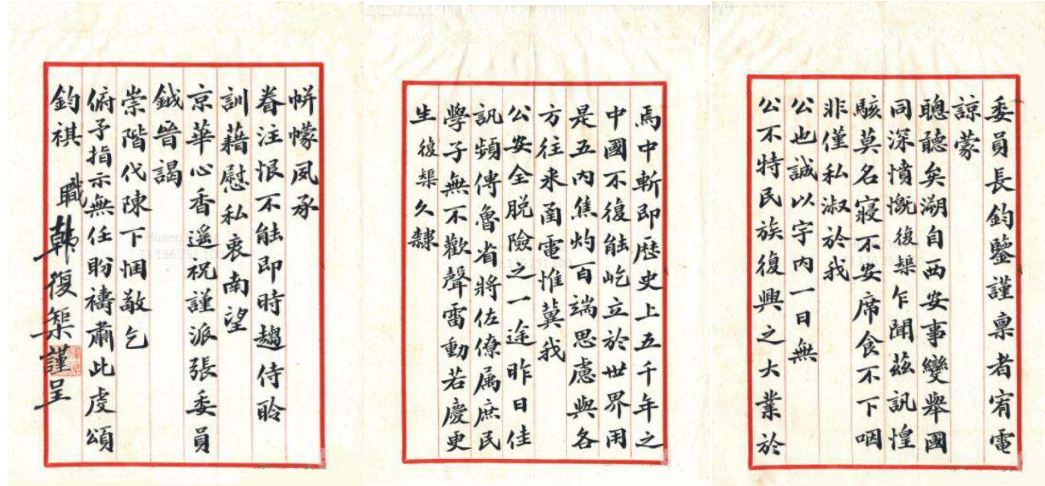 委員長鈞鑒謹稟者宥電
諒蒙
聰聽矣溯自西安事變舉國
同深憤慨復榘乍聞茲訊惶
駭莫名寢不安席食不下咽
非僅私淑於我
公也誠以宇內一日無
公不特民族復興之大業於
焉中斬即歷史上五千年之
中國不復能屹立於世界用
是五內焦灼百端思慮與各
方往來函電惟冀我
公安全脫險之一途昨日佳
訊頻傳魯省將佐僚属庶民
學子無不歡聲雷動若慶更
生復榘久隸
帡幪夙承
眷注恨不能即時趨侍聆
訓藉慰私衷南望
京華心香遥祝謹派張委員
鉞晉謁
崇階代陳下悃敬乞
俯予指示無任盼禱肅此虔頌
鈞祺 職韓復榘謹呈